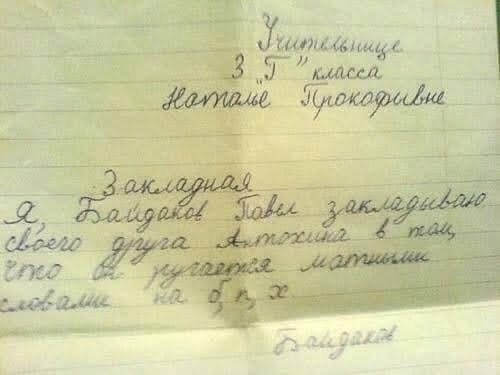 Учительнице
3 „Г” класса
Наталье Прокофивне
Закладная
Я, Байдаков Павел закладываю
своего друга Антохина в том,
что он ругается матными
словами на б, п, х
Байдаков